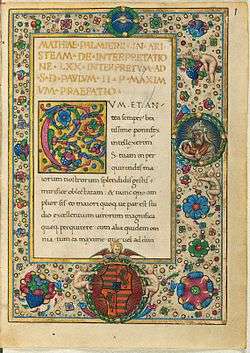 MATHIÆ PALMIERII IN ARI
STEAM DE INTERPRETATIO
NE LXX INTERPRETVM AD
S D PAVLVM II P MAXIM
VM PRAEFATIO
VM ET AN
tea semper bea
tissime pontifex
intellexerim
S. tuam omni per
quirendi ma
iorum nostrorum splendidis gestis
mirifice oblectatam & nunc quo am
plior fit eo maiori quoque par est stu
dio excellentium uirorum magnifica
quaeque perquirere cum alia quidem om
nia tum ea maxime quae uel ad eius